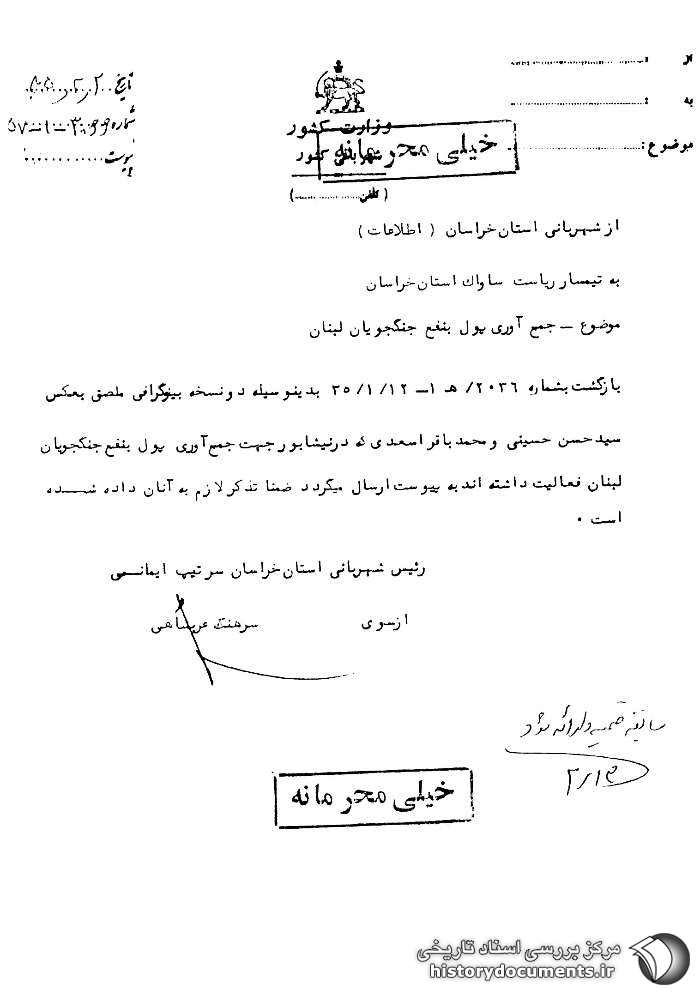 از :
به :
موضوع :
وزارت کشور
شهربانی کشور
خیلی محرمانه
(تلفن)
تاریخ
شماره
پیوست
از شهربانی استان خراسان ( اطلاعات )
به تیمسار ریاست ساواك استان خراسان
موضوع ـ جمع آوری پول بنفع جنگجویان لبنان
بازگشت بشماره ۲۰۳۶/ هـ ۱ـ ۳۵/۱/۱۲ بدینوسیله دو نسخه بیوگرافی ملصق بعکس
سید حسن حسینی و محمد باقر اسعدی که در نیشابور جهت جمع آوری پول بنفع جنگجویان
لبنان فعالیت داشته اند به پیوست ارسال میگردد ضمنا تذکر لازم به آنان داده شـــده
است ۰
رئیس شهربانی استان خراسان سرتیپ ایمانـــی
از سوی سرهنگ عربشاهی
سابقه ضمیمه و ارائه شود
۲/۱۳
خیلی محرمانه
مرکز بررسی اسناد تاریخی
historydocuments.ir